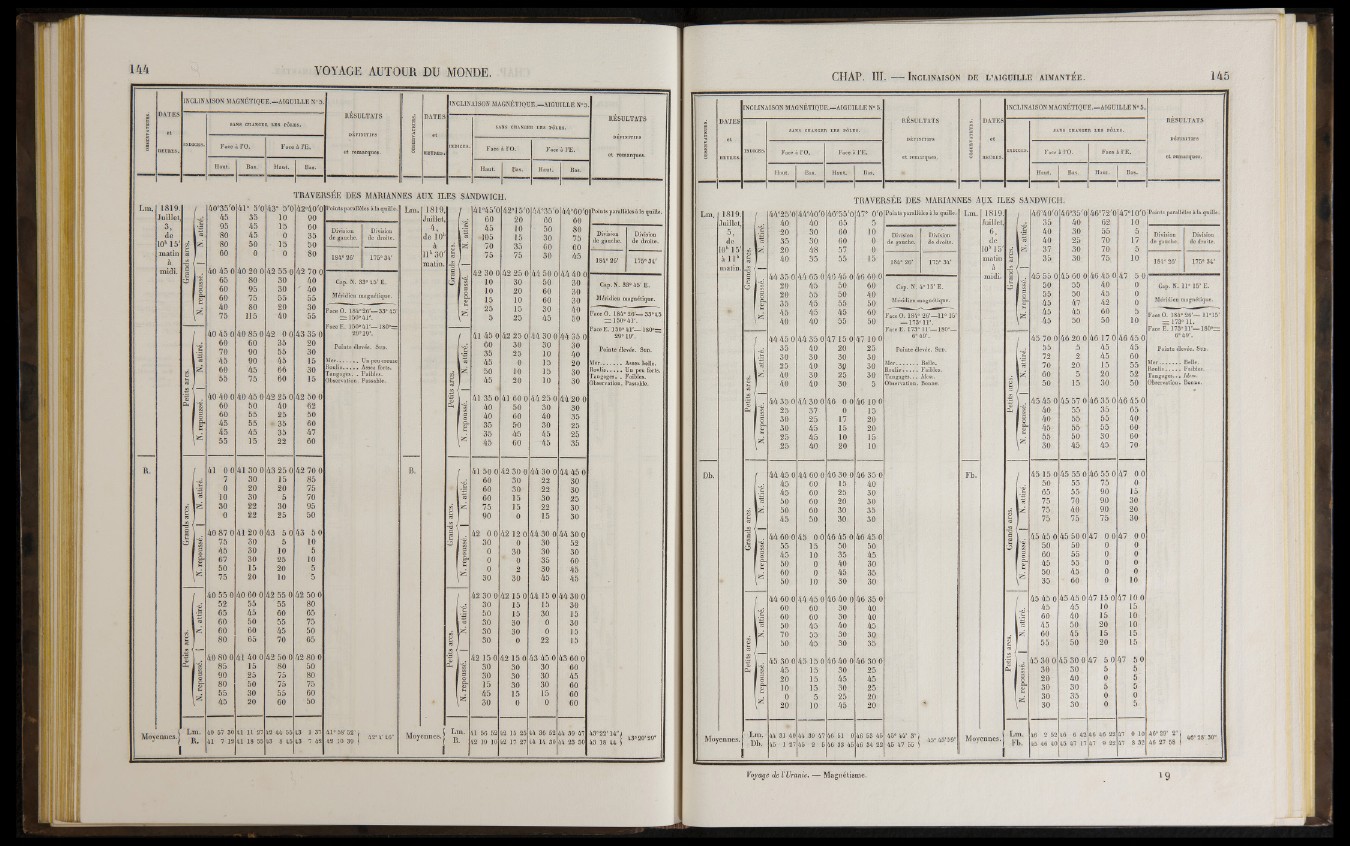 144 VOYAGE AUTOUR DU MONDE.
OBSERVATEURS. DATES et HEURES. INCLINAISON MAGNÉTIQUE.—AIGUILLE N° 5. RÉSULTATS DÉFINITIFS et remarques.
INDICES. SANS CHANGER LES PÔLES.
Face à l'O. Face à l'E.
Haut. Bas. Haut. Bas.
TRAVERSÉE DES MARIANNES AUX ILES SANDWICH.
Lm. 1819. Juillet, 3, de 10h 15' matin à midi.
Grands arcs. N. attiré.
40°35'0 41° 5'0 43° 5'0 42°40'0
45 35 10 90
95 45 15 60
80 45 0 35
80 50 15 50
60 0 0 80
N. repoussé.
40 45 0 40 20 0 42 55 0 42 70 0
65 80 30 40
60 95 30 40
60 75 55 55
40 80 20 30
75 115 40 55
Petits arcs. N. attiré.
40 45 0 40 85 0 42 0 0 43 35 0
60 60 35 20
70 90 55 30
45 90 45 15
60 45 66 30
55 75 60 15
N. repoussé.
40 40 0 40 45 0 42 25 0 42 50 0
60 50 40 62
60 55 25 50
45 55 35 60
45 45 35 47
55 15 22 60
Pointe parallèles à la quille.
Division de gauche. Division de droite.
184° 26' 175° 34'
Cap. N. 33° 45' E.
Méridien magnétique.
Face O. 184° 26'— 33° 45' = 150° 41'.
Face E. 150° 41'— 180° = 29° 19'.
Pointe élevée. Sud.
Mer....... Un peu creuse
Roulis..... Assez forts.
Tangages... Faibles.
Observation. Passable.
R.
Grands arcs. N. attiré.
41 0 0 41 30 0 43 25 0 42 70 0
7 30 15 85
0 20 20 75
10 30 5 70
30 22 30 95
0 22 25 50
N. repoussé.
40 87 0 41 20 0 43 5 0 43 5 0
75 30 5 10
45 30 10 5
67 30 25 10
50 15 20 5
75 20 10 5
Petits arcs. N. attiré.
40 55 0 40 60 0 42 55 0 42 50 0
52 55 55 80
65 45 60 65
60 50 55 75
60 60 45 50
80 65 70 65
N. repoussé.
40 80 0 41 40 0 42 50 0 42 80 0
85 15 80 50
90 25 75 80
80 50 75 75
55 30 55 60
45 20 60 50
Moyennes. Lm. 40 57 30 41 11 27 42 44 55
R. 41 7 12 43 7 42 42 10 39
Lm. 1819. Juillet, 4, de 10h à 11h 30' matin.
Grands arcs. N. attiré.
41°45'0 42°15'0 44°35'0 44°60'0
60 20 60 60
45 10 50 80
105 15 30 75
70 35 60 60
75 75 30 45
N. repoussé.
42 30 0 42 25 0 44 50 0 44 40 0
10 30 50 30
10 20 60 30
15 10 60 30
25 15 30 40
5 25 45 50
Petits arcs. N. attiré.
41 45 0 42 25 0 44 30 0 44 35 0
60 30 30 30
35 25 10 40
45 0 15 20
50 10 15 30
45 20 10 30
N. repoussé.
41 35 0 41 60 0 44 25 0 44 20 0
40 50 30 30
40 60 40 35
35 50 30 25
35 45 45 25
45 60 45 35
Pointe parallèles à la quille.
Division de gauche. Division de droite.
184° 26' 175° 34'
Cap. N. 33° 45' E.
Méridien magnétique.
Face O. 184° 26'— 33° 45' = 150° 41'.
Face E. 150° 41'— 180° = 29° 19'.
Pointe élevée. Sud.
Mer....... Assez belle.
Roulis..... Un peu forts.
Tangages... Faibles.
Observation. Passable.
R.
Grands arcs. N. attiré.
41 50 0 42 30 0 44 30 0 44 45 0
60 30 22 30
60 30 22 30
60 15 30 25
75 15 22 30
90 0 15 30
N. repoussé.
42 0 0 42 12 0 44 30 0 44 30 0
30 0 30 52
0 30 30 30
0 0 35 60
0 2 30 45
30 30 45 45
Petits arcs. N. attiré.
42 30 0 42 15 0 44 15 0 44 30 0
30 15 15 30
50 15 30 15
30 30 0 30
30 30 0 15
30 0 22 15
N. repoussé.
42 15 0 42 15 0 43 45 0 43 60 0
30 30 30 60
30 30 30 45
15 30 30 60
45 15 15 60
30 0 0 60
Moyennes. Lm. 41 56 52 42 15 25 44 36 52 44 39 57 43°22'14" 43°20'29"
R. 42 19 10 42 17 27 44 14 30 44 23 50 43 18 44
CHAP. III. — INCLINAISON DE L'AIGUILLE AIMANTÉE. 145
OBSERVATEURS. DATES et HEURES. INCLINAISON MAGNÉTIQUE.—AIGUILLE N° 5. RÉSULTATS DÉFINITIFS et remarques.
INDICES. SANS CHANGER LES PÔLES.
Face à l'O. Face à l'E.
Haut. Bas. Haut. Bas.
TRAVERSÉE DES MARIANNES AUX ILES SANDWICH.
Lm. 1819. Juillet, 5, de 10h 15' à 11h matin.
Grands arcs. N. attiré.
44°25'0 44°40'0 46°55'0 47° 0'0
40 40 65 5
20 50 60 10
35 30 60 0
20 48 57 0
40 35 55 15
N. repoussé.
44 35 0 44 65 0 46 45 0 46 60 0
20 45 50 60
20 55 50 40
35 45 55 50
45 45 45 60
40 40 55 50
Petits arcs. N. attiré.
44 45 0 44 35 0 47 15 0 47 10 0
35 40 20 25
30 30 30 30
25 40 30 30
40 30 25 30
40 40 30 5
N. repoussé.
44 35 0 44 30 0 46 0 0 46 10 0
25 37 0 15
30 25 17 20
30 45 15 20
25 45 10 15
25 40 20 10
Pointe parallèles à la quille.
Division de gauche. Division de droite.
184° 26' 175° 34'
Cap. N. 4° 15' E.
Méridien magnétique.
Face O. 184° 26'—11° 15' = 173° 11'.
Face E. 173° 11'— 180°— 6° 49'.
Pointe élevée. Sud.
Mer....... Belle.
Roulis..... Faibles.
Tangages... Idem.
Observation. Bonne.
Db.
Grands arcs. N. attiré.
44 45 0 44 60 0 46 30 0 46 35 0
45 60 15 40
45 60 25 30
50 60 20 30
50 60 30 35
45 50 30 30
N. repoussé.
44 60 0 45 0 0 46 45 0 46 45 0
55 15 50 50
45 10 35 45
50 0 40 30
60 0 45 35
50 10 30 30
Petits arcs. N. attiré.
44 60 0 44 45 0 46 40 0 46 35 0
60 60 30 40
60 60 30 40
50 45 40 45
70 55 30 30
50 45 30 35
N. repoussé.
45 30 0 45 15 0 46 40 0 46 30 0
45 15 30 25
20 15 45 45
10 15 30 25
0 5 25 20
20 10 45 20
Moyennes. Lm. 44 31 40 44 39 57 46 41 0 45° 44' 3" 45°45'59"
Db. 45 1 27 45 2 5 46 33 45 46 34 22 45 47 55
Lm. 1819. Juillet, 6, de 10h 15' matin à midi.
Grands arcs. N. attiré.
46°40'0 46°35'0 46°72'0 47°10'0
35 40 62 10
40 30 55 5
40 25 70 17
37 30 70 5
35 30 75 10
N. repoussé.
45 55 0 45 60 0 46 45 0 47 5 0
50 35 40 0
55 50 45 0
45 47 42 0
45 45 60 5
45 50 50 10
Petits arcs. N. attiré.
45 70 0 46 20 0 46 17 0 46 45 0
55 5 45 45
72 2 45 60
70 20 15 55
60 5 20 52
50 15 30 50
N. repoussé.
45 45 0 45 57 0 46 35 0 46 45 0
40 55 35 65
40 55 55 40
45 55 55 60
55 50 30 60
30 45 45 70
Pointe parallèles à la quille.
Division de gauche. Division de droite.
184° 26' 175° 34'
Cap. N. 11° 15' E.
Méridien magnétique.
Face O. 184° 26'— 11° 15' = 173° 11'.
Face E. 173° 11'— 180° = 6° 49'.
Pointe élevée. Sud.
Mer....... Belle.
Roulis..... Faibles.
Tangages... Idem.
Observation. Bonne.
Fb.
Grands arcs. N. attiré.
45 15 0 45 35 0 46 55 0 47 0 0
50 55 75 0
65 55 90 15
75 70 90 30
75 40 90 20
75 75 75 30
N. repoussé.
45 45 0 45 50 0 47 0 0 47 0 0
50 50 0 0
60 55 0 0
45 55 0 0
50 45 0 0
35 60 0 10
Petits arcs. N. attiré.
45 45 0 45 45 0 47 15 0 47 10 0
45 45 10 15
60 40 15 10
45 50 20 10
60 45 15 15
55 50 20 15
N. repoussé.
45 30 0 45 30 0 47 5 0 47 5 0
30 30 5 5
20 40 0 5
30 30 5 5
30 35 0 0
30 30 0 5
Moyennes. Lm. 46 2 52 46 6 42 46 46 22 47 0 15 46°29' 2" 46°28'30"
Fb. 45 48 40 45 47 17 47 0 22 46 27 58
Voyage de l'Uranie. — Magnétisme. 19